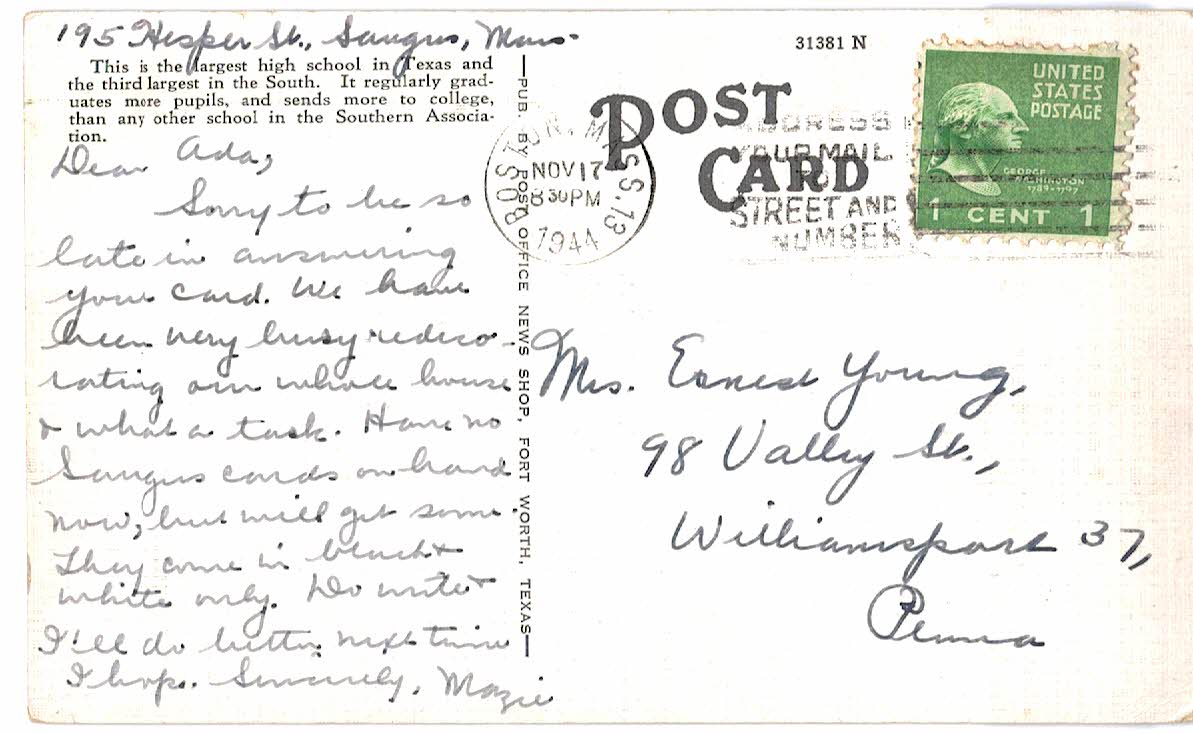 195 Hesper St., Saugus, Mass-
This is the largest high school in Texas and
the third largest in the South. It regularly grad-
uates more pupils, and sends more to college,
than any other school in the Southern Associa-
tion.
Dear Ada,
Sorry to be so
late in answering
your card. We have
been very busy redeco-
rating our whole house
& what a task. Have no
Saugus cards on hand
now, but will get some.
They come in black &
white only. Do write &
I'll do better next time
I hope. Sincerely, Mazie
PUB. BY POST OFFICE NEWS SHOP, FORT WORTH, TEXAS
31381 N
POST
CARD
BOSTON, MASS. 13
NOV 17
8 30 PM
1944
ADDRESS
YOUR MAIL
TO
STREET AND
NUMBER
UNITED
STATES
POSTAGE
GEORGE
WASHINGTON
1789-1797
1 CENT 1
Mrs. Ernest Young,
98 Valley St.,
Williamsport 37,
Penna